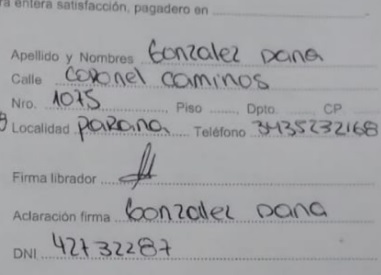 ra entera satisfacción, pagadero en
Apellido y Nombres Gonzalez Dana
Calle Coronel caminos
Nro. 1075 Piso Dpto. CP
Localidad parana Teléfono 3435232168
Firma librador
Aclaración firma Gonzalez Dana
DNI 42732287